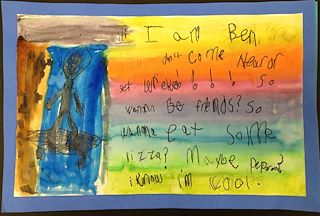 I am Ben.
don't come near or
get wrecked! ! ! ! So
wanna Be friends? So
wanna eat some
pizza? Maybe
i know i'm cool.